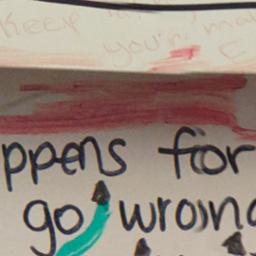 Keep
you'r
ppens for
go wrong